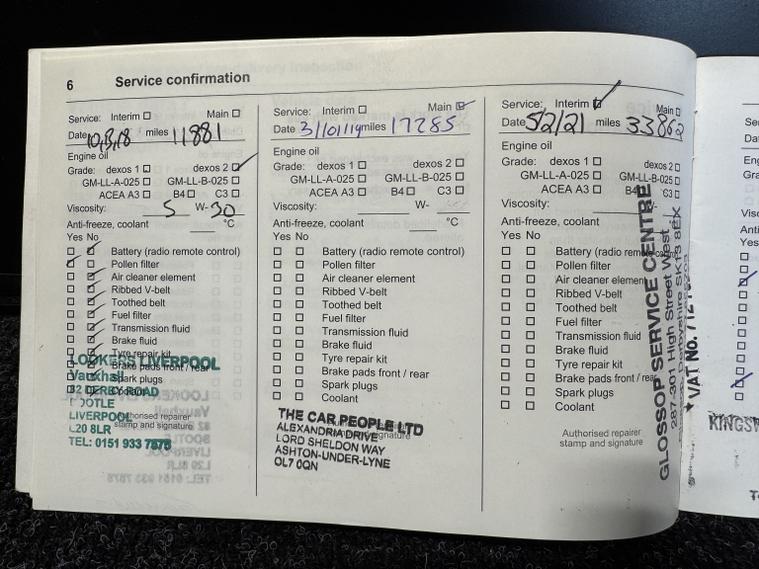 6 Service confirmation
Service: Interim Main
Date 10,3,18 miles 11881
Engine oil
Grade: dexos 1 dexos 2
GM-LL-A-025 GM-LL-B-025
ACEA A3 B4 C3
Viscosity: 5 W-30
Anti-freeze, coolant °C
Yes No
Battery (radio remote control)
Pollen filter
Air cleaner element
Ribbed V-belt
Toothed belt
Fuel filter
Transmission fluid
Brake fluid
Tyre repair kit
Brake pads front / rear
Spark plugs
Coolant
Authorised repairer
stamp and signature
LOOKERS LIVERPOOL
Vauxhall
32 DERBY ROAD
BOOTLE
LIVERPOOL
L20 8LR
TEL: 0151 933 7878
Service: Interim Main
Date 31/01/19 miles 17285
Engine oil
Grade: dexos 1 dexos 2
GM-LL-A-025 GM-LL-B-025
ACEA A3 B4 C3
Viscosity: W-
Anti-freeze, coolant °C
Yes No
Battery (radio remote control)
Pollen filter
Air cleaner element
Ribbed V-belt
Toothed belt
Fuel filter
Transmission fluid
Brake fluid
Tyre repair kit
Brake pads front / rear
Spark plugs
Coolant
THE CAR PEOPLE LTD
ALEXANDRIA DRIVE
LORD SHELDON WAY
ASHTON-UNDER-LYNE
OL7 0QN
signature
Service: Interim Main
Date 5/2/21 miles 33862
Engine oil
Grade: dexos 1 dexos 2
GM-LL-A-025 GM-LL-B-025
ACEA A3 B4 C3
Viscosity: W-
Anti-freeze, coolant °C
Yes No
Battery (radio remote control)
Pollen filter
Air cleaner element
Ribbed V-belt
Toothed belt
Fuel filter
Transmission fluid
Brake fluid
Tyre repair kit
Brake pads front / rear
Spark plugs
Coolant
Authorised repairer
stamp and signature
GLOSSOP SERVICE CENTRE
287-301 High Street West
Derbyshire SK13 8EX
VAT No.